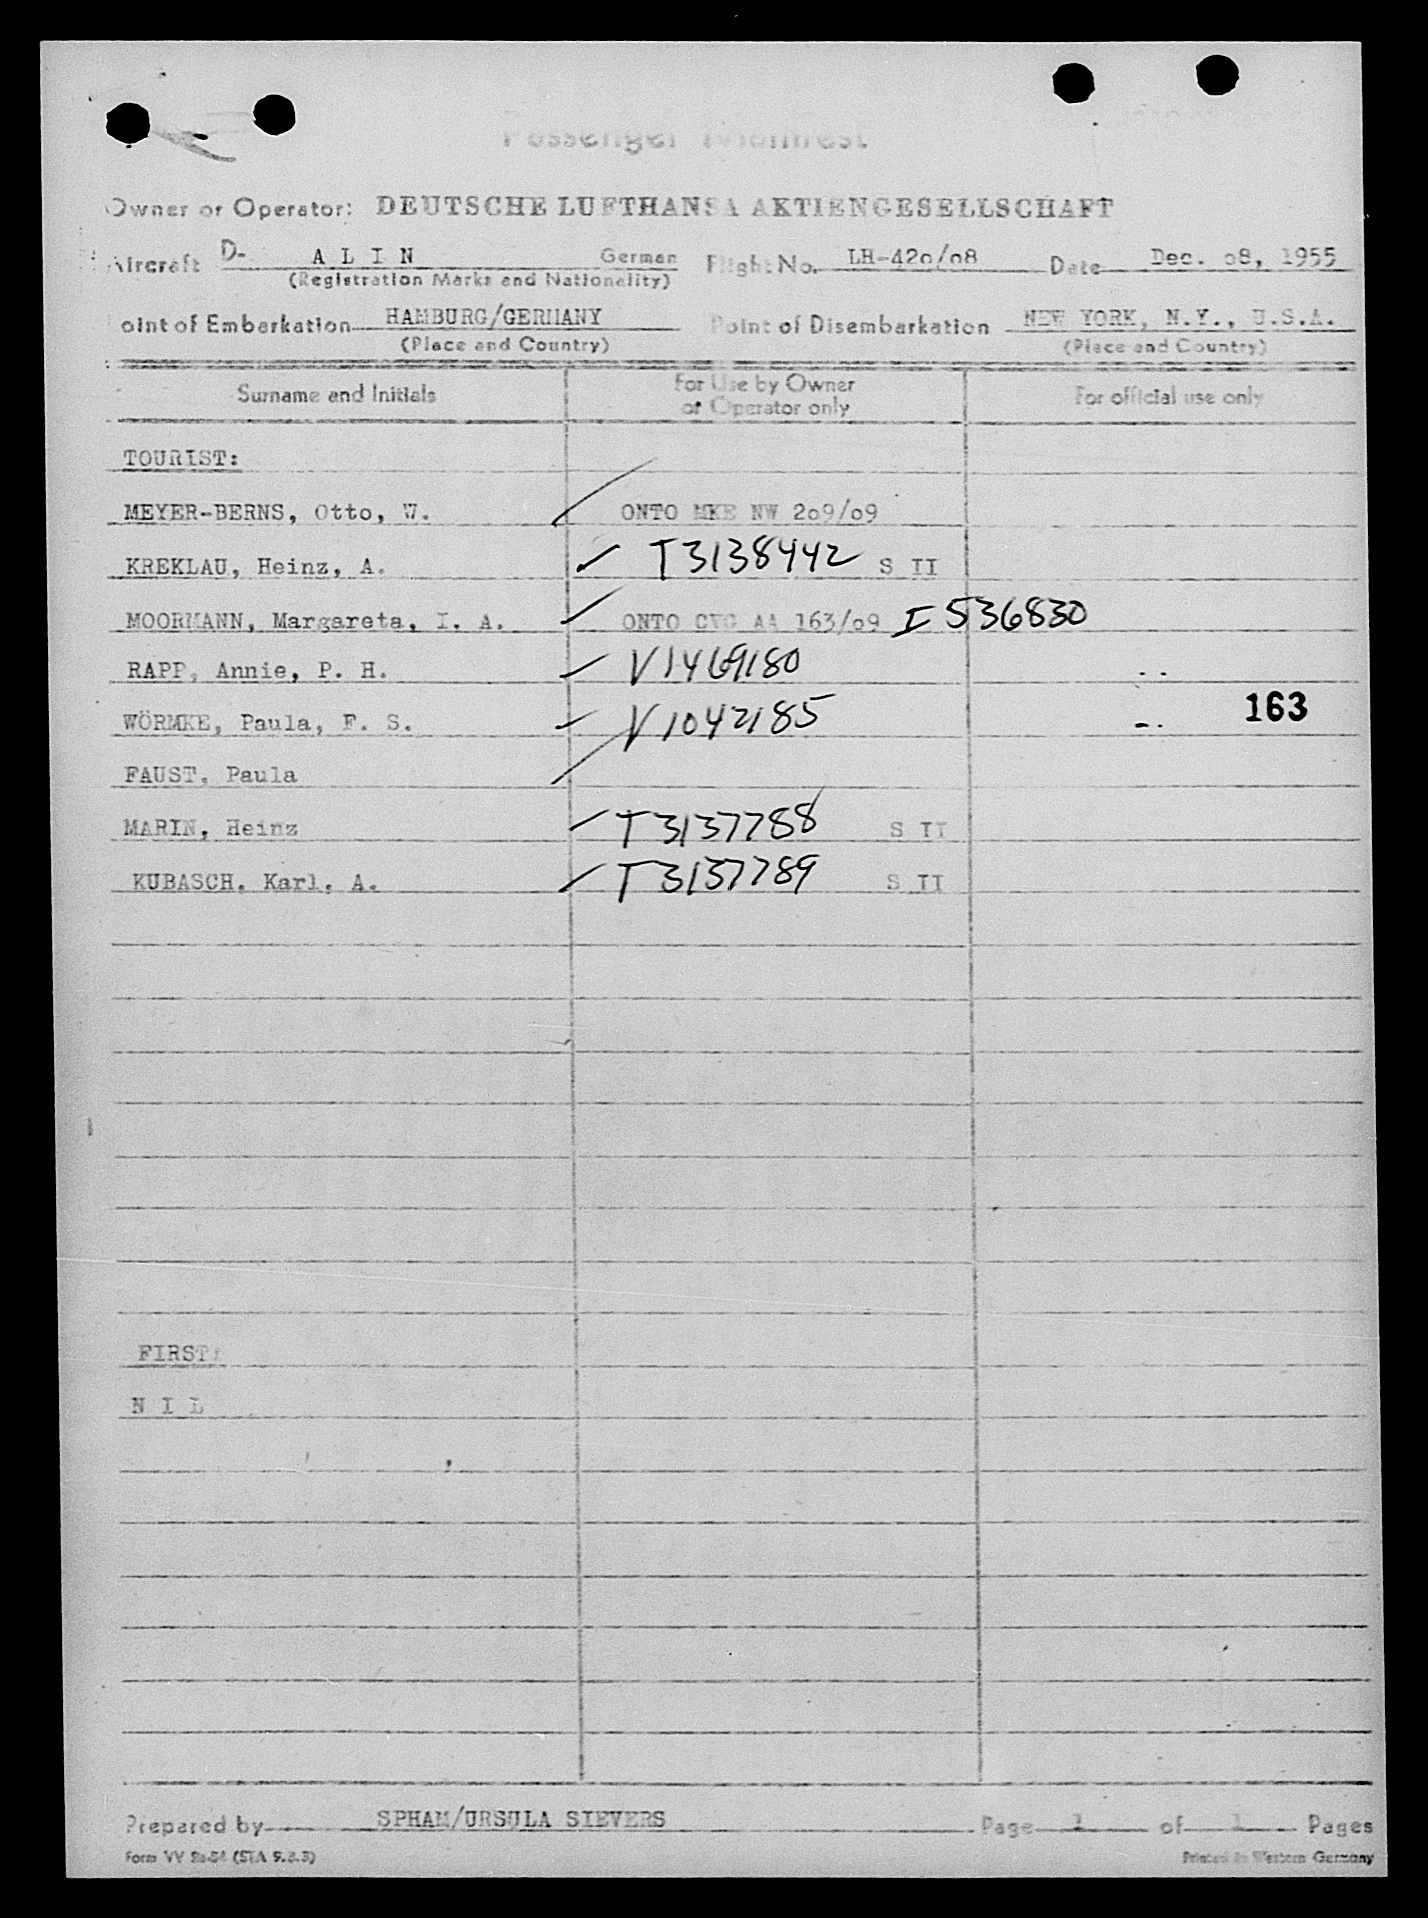 Passenger Manifest
Owner or Operator: DEUTSCHE LUFTHANSA AKTIENGESELLSCHAFT
Aircraft D- A L I N German Flight No. LH-42o/o8 Date Dec. o8, 1955
(Registration Marks and Nationality)
oint of Embarkation HAMBURG/GERMANY Point of Disembarkation NEW YORK, N.Y., U.S.A.
(Place and Country) (Place and Country)
Surname and Initials For Use by Owner or Operator only For official use only
TOURIST:
MEYER-BERNS, Otto, W. ONTO MKE NW 2o9/o9
KREKLAU, Heinz, A. T3138442 S II
MOORMANN, Margareta, I. A. ONTO CVG AA 163/o9 I 536830
RAPP, Annie, P. H. V1469180
WÖRMKE, Paula, F. S. V1042185 163
FAUST, Paula
MARIN, Heinz T3137788 S II
KUBASCH, Karl, A. T3137789 S II
FIRST:
N I L
Prepared by SPHAM/URSULA SIEVERS Page 1 of 1 Pages
Form VV 2a-54 (STA 9.3.3) Printed in Western Germany